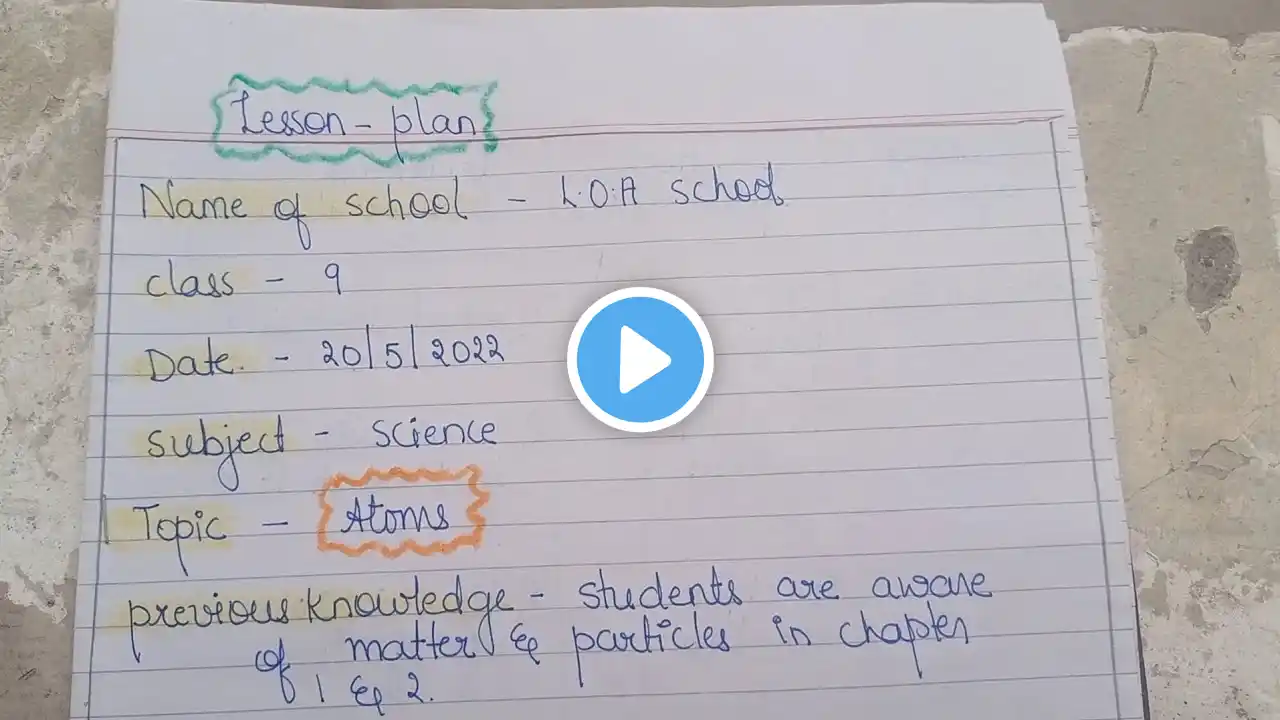 Lesson - plan
Name of school - L.O.A school
class - 9
Date. - 20/5/2022
subject - science
Topic - Atoms
previous knowledge - students are aware
of matter & particles in chapter
1 & 2.